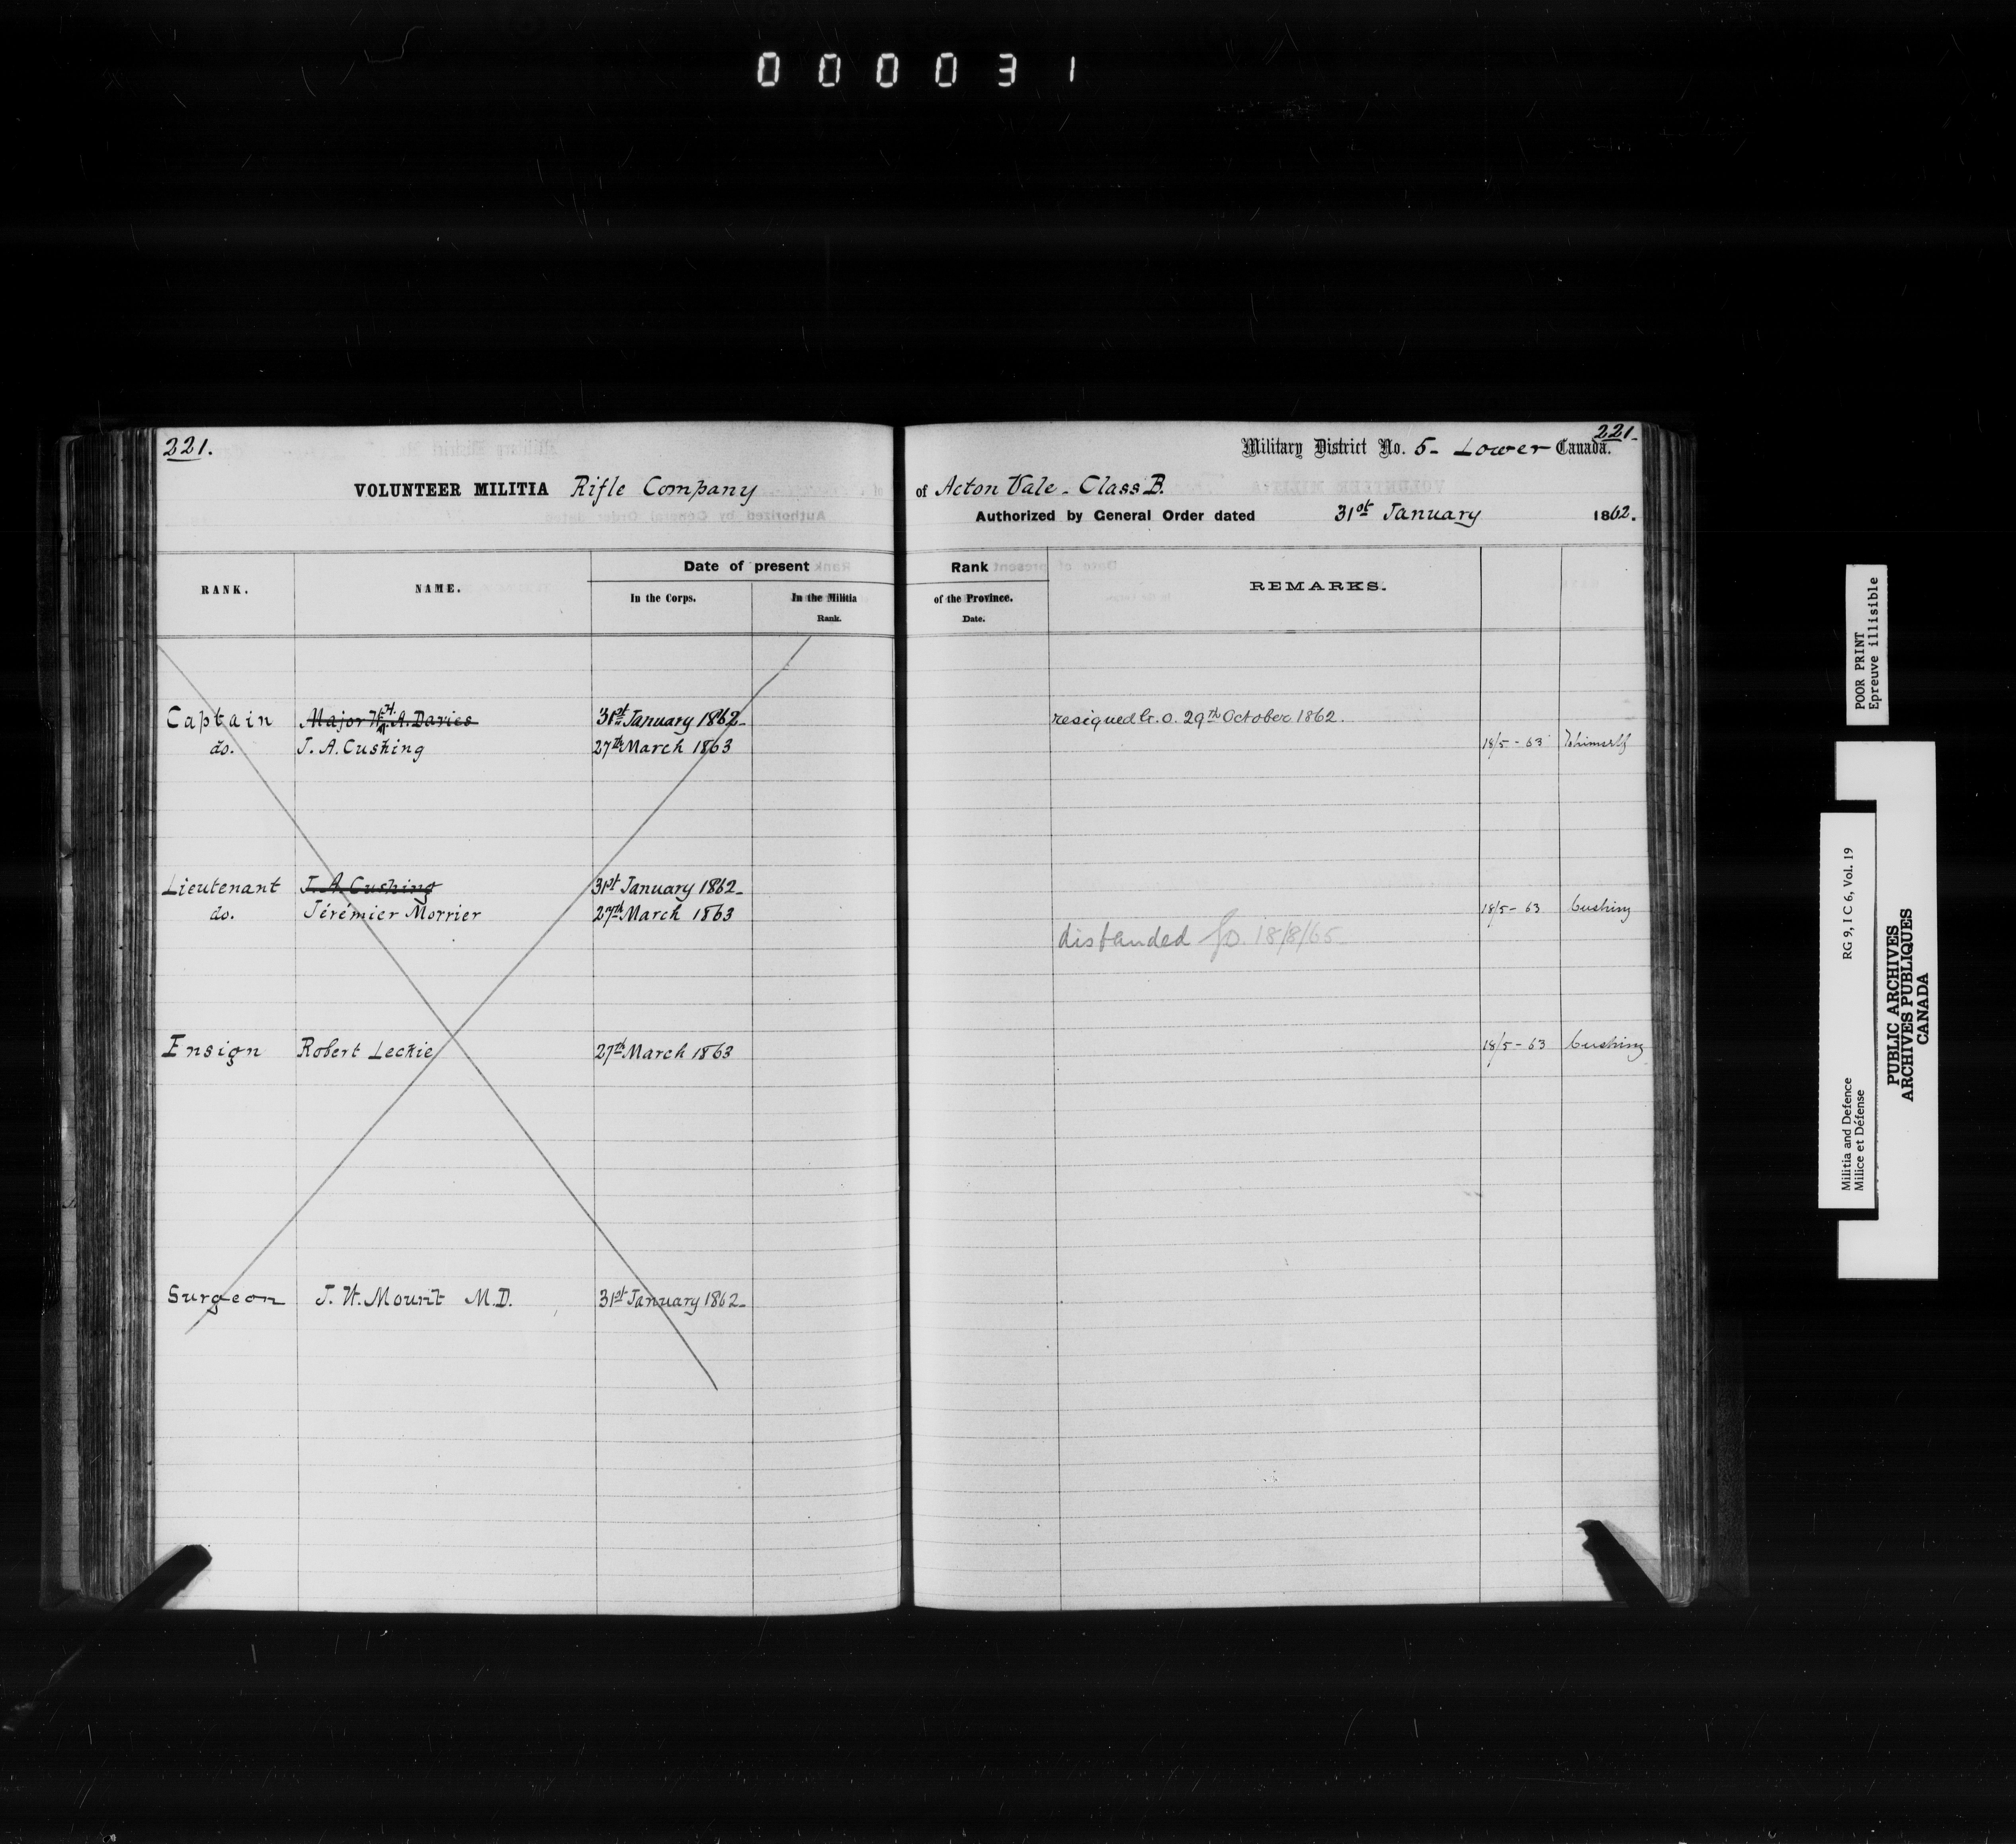 000031
221.
221.
Military District No. 5 - Lower Canada.
VOLUNTEER MILITIA Rifle Company of Acton Vale - Class B.
Authorized by General Order dated 31st January 1862.
RANK. NAME. Date of present Rank REMARKS.
In the Corps. In the Militia of the Province.
Rank. Date.
Captain Major W. H. A. Davies 31st January 1862 - resigned G. O. 29th October 1862.
do. J. A. Cushing 27th March 1863 18/5 - 63 himself
Lieutenant J. A. Cushing 31st January 1862 -
do. Jérémier Morrier 27th March 1863 18/5 - 63 Cushing
disbanded 18/8/65
Ensign Robert Leckie 27th March 1863 18/5 - 63 Cushing
Surgeon J. W. Mount M.D. 31st January 1862 -
POOR PRINT
Epreuve illisible
Militia and Defence RG 9, I C 6, Vol. 19
Milice et Défense
PUBLIC ARCHIVES
ARCHIVES PUBLIQUES
CANADA